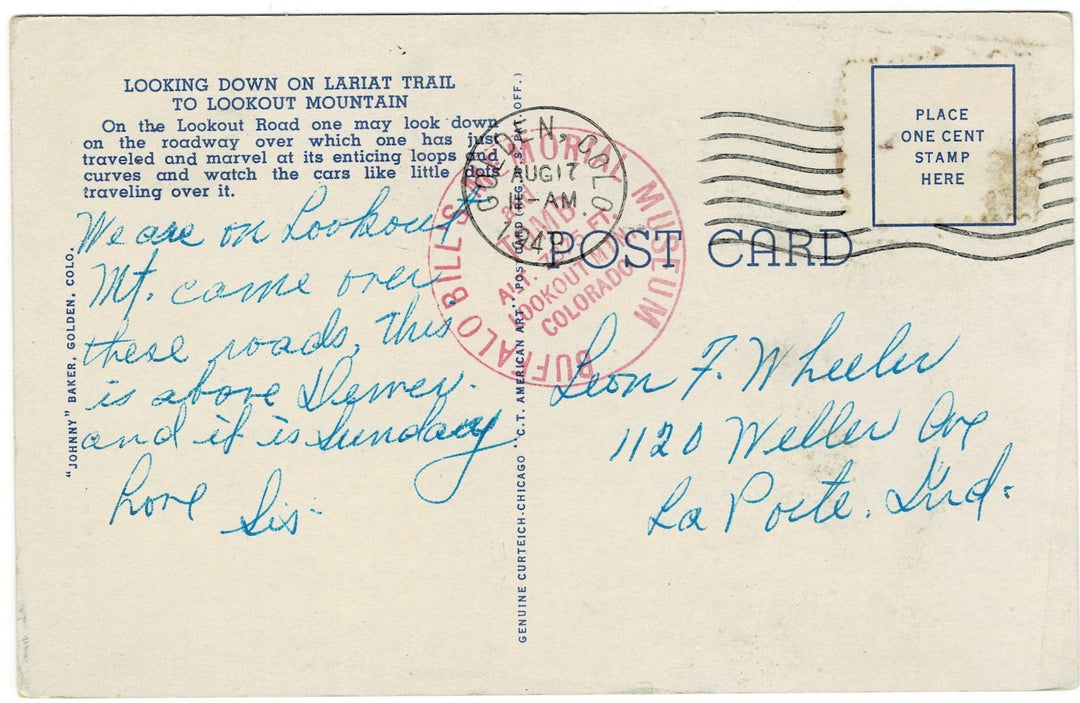 LOOKING DOWN ON LARIAT TRAIL
TO LOOKOUT MOUNTAIN
On the Lookout Road one may look down
on the roadway over which one has just
traveled and marvel at its enticing loops and
curves and watch the cars like little dots
traveling over it.
We are on Lookout
Mt. came over
these roads, this
is above Denver.
and it is Sunday
Love Sis-
"JOHNNY" BAKER, GOLDEN, COLO.
GENUINE CURTEICH-CHICAGO "C.T. AMERICAN ART" POST CARD (REG. U.S. PAT. OFF.)
GOLDEN, COLO.
AUG 17
-AM
BUFFALO BILL'S MEMORIAL MUSEUM
and
TOMB
LOOKOUT MTN.
COLORADO
POST CARD
PLACE
ONE CENT
STAMP
HERE
Leon F. Wheeler
1120 Weller Ave
La Porte, Ind.